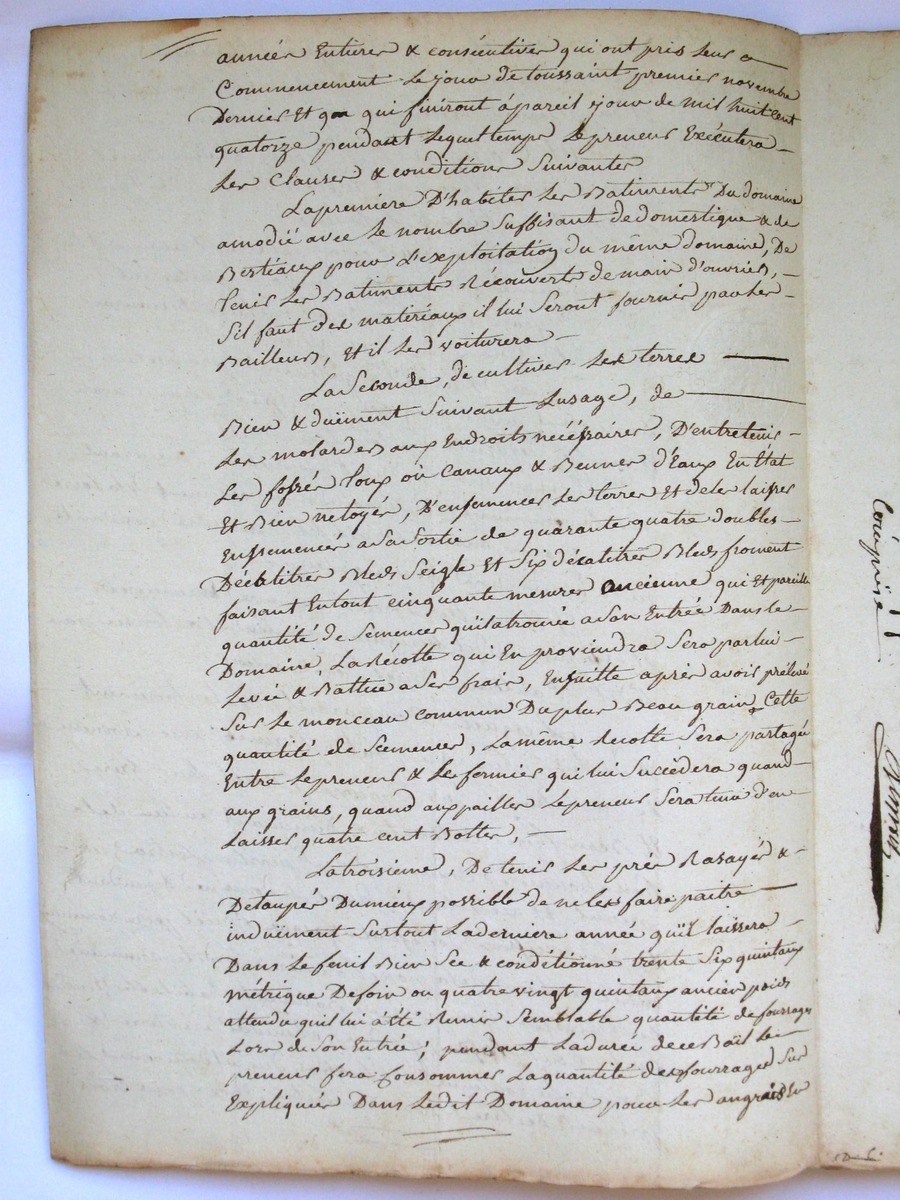 années Entieres & consécutives qui ont pris leur
Commencement le jour de toussaint premier novembre
Dernier Et qui finiront à pareil jour de mil huit cent
quatorze pendant lequel temps le preneur Exécutera
les Clauses & conditions Suivantes
La premiere D'habiter les Batiments Du domaine
amodié avec le nombre Suffisant de domestique & de
Bestiaux pour l'exploitation du même domaine, De
tenir les Batiments Récouverts de main d'ouvrier,
S'il faut des materiaux il lui Seront fournis par les
Bailleurs, Et il les voiturera
La Seconde, de cultiver les terres
Bien & duëment Suivant Lusage, de
les molarder aux Endroits nécessaires, D'entretenir
les fossés loup où Canaux & Bennes d'Eaux En Etat
Et Bien netoyés, D'ensemencer les terres Et de les laisser
Ensemencés a Sa Sortie de quarante quatre doubles
Décalitres Bleds Seigle Et Six décalitres Bleds froment
faisant En tout cinquante mesures ancienne qui Et pareille
quantité de Semences qu'il a trouvée a Son Entrée Dans le
Domaine, La Récolte qui En proviendra Sera par lui
Levée & Battue a Ses frais, Ensuitte après avoir prélevé
Sur le monceau commun Du plus Beau grain Cette
quantité de Semences, La même Récolte Sera partagée
Entre le preneur & le fermier qui lui Succèdera quand
aux grains, quand aux pailles le preneur Sera tenu d'en
Laisser quatre cent Bottes,
La troisieme, De tenir les prés Rasayés &
Detaupés Du mieux possible de ne les faire paitre
induëment Surtout La derniere année qu'il laissera
Dans le fenil Bien Sec & conditionné trente Six quintaux
métrique De foin ou quatre vingt quintaux ancien poids
attendu qu'il lui à été Remis Semblable quantité de fourrages
Lors de Son Entrée; pendant La durée de ce Baïl le
preneur fera Consommer La quantité des fourrages Sus
Expliquées Dans Ledit Domaine pour les angrais En